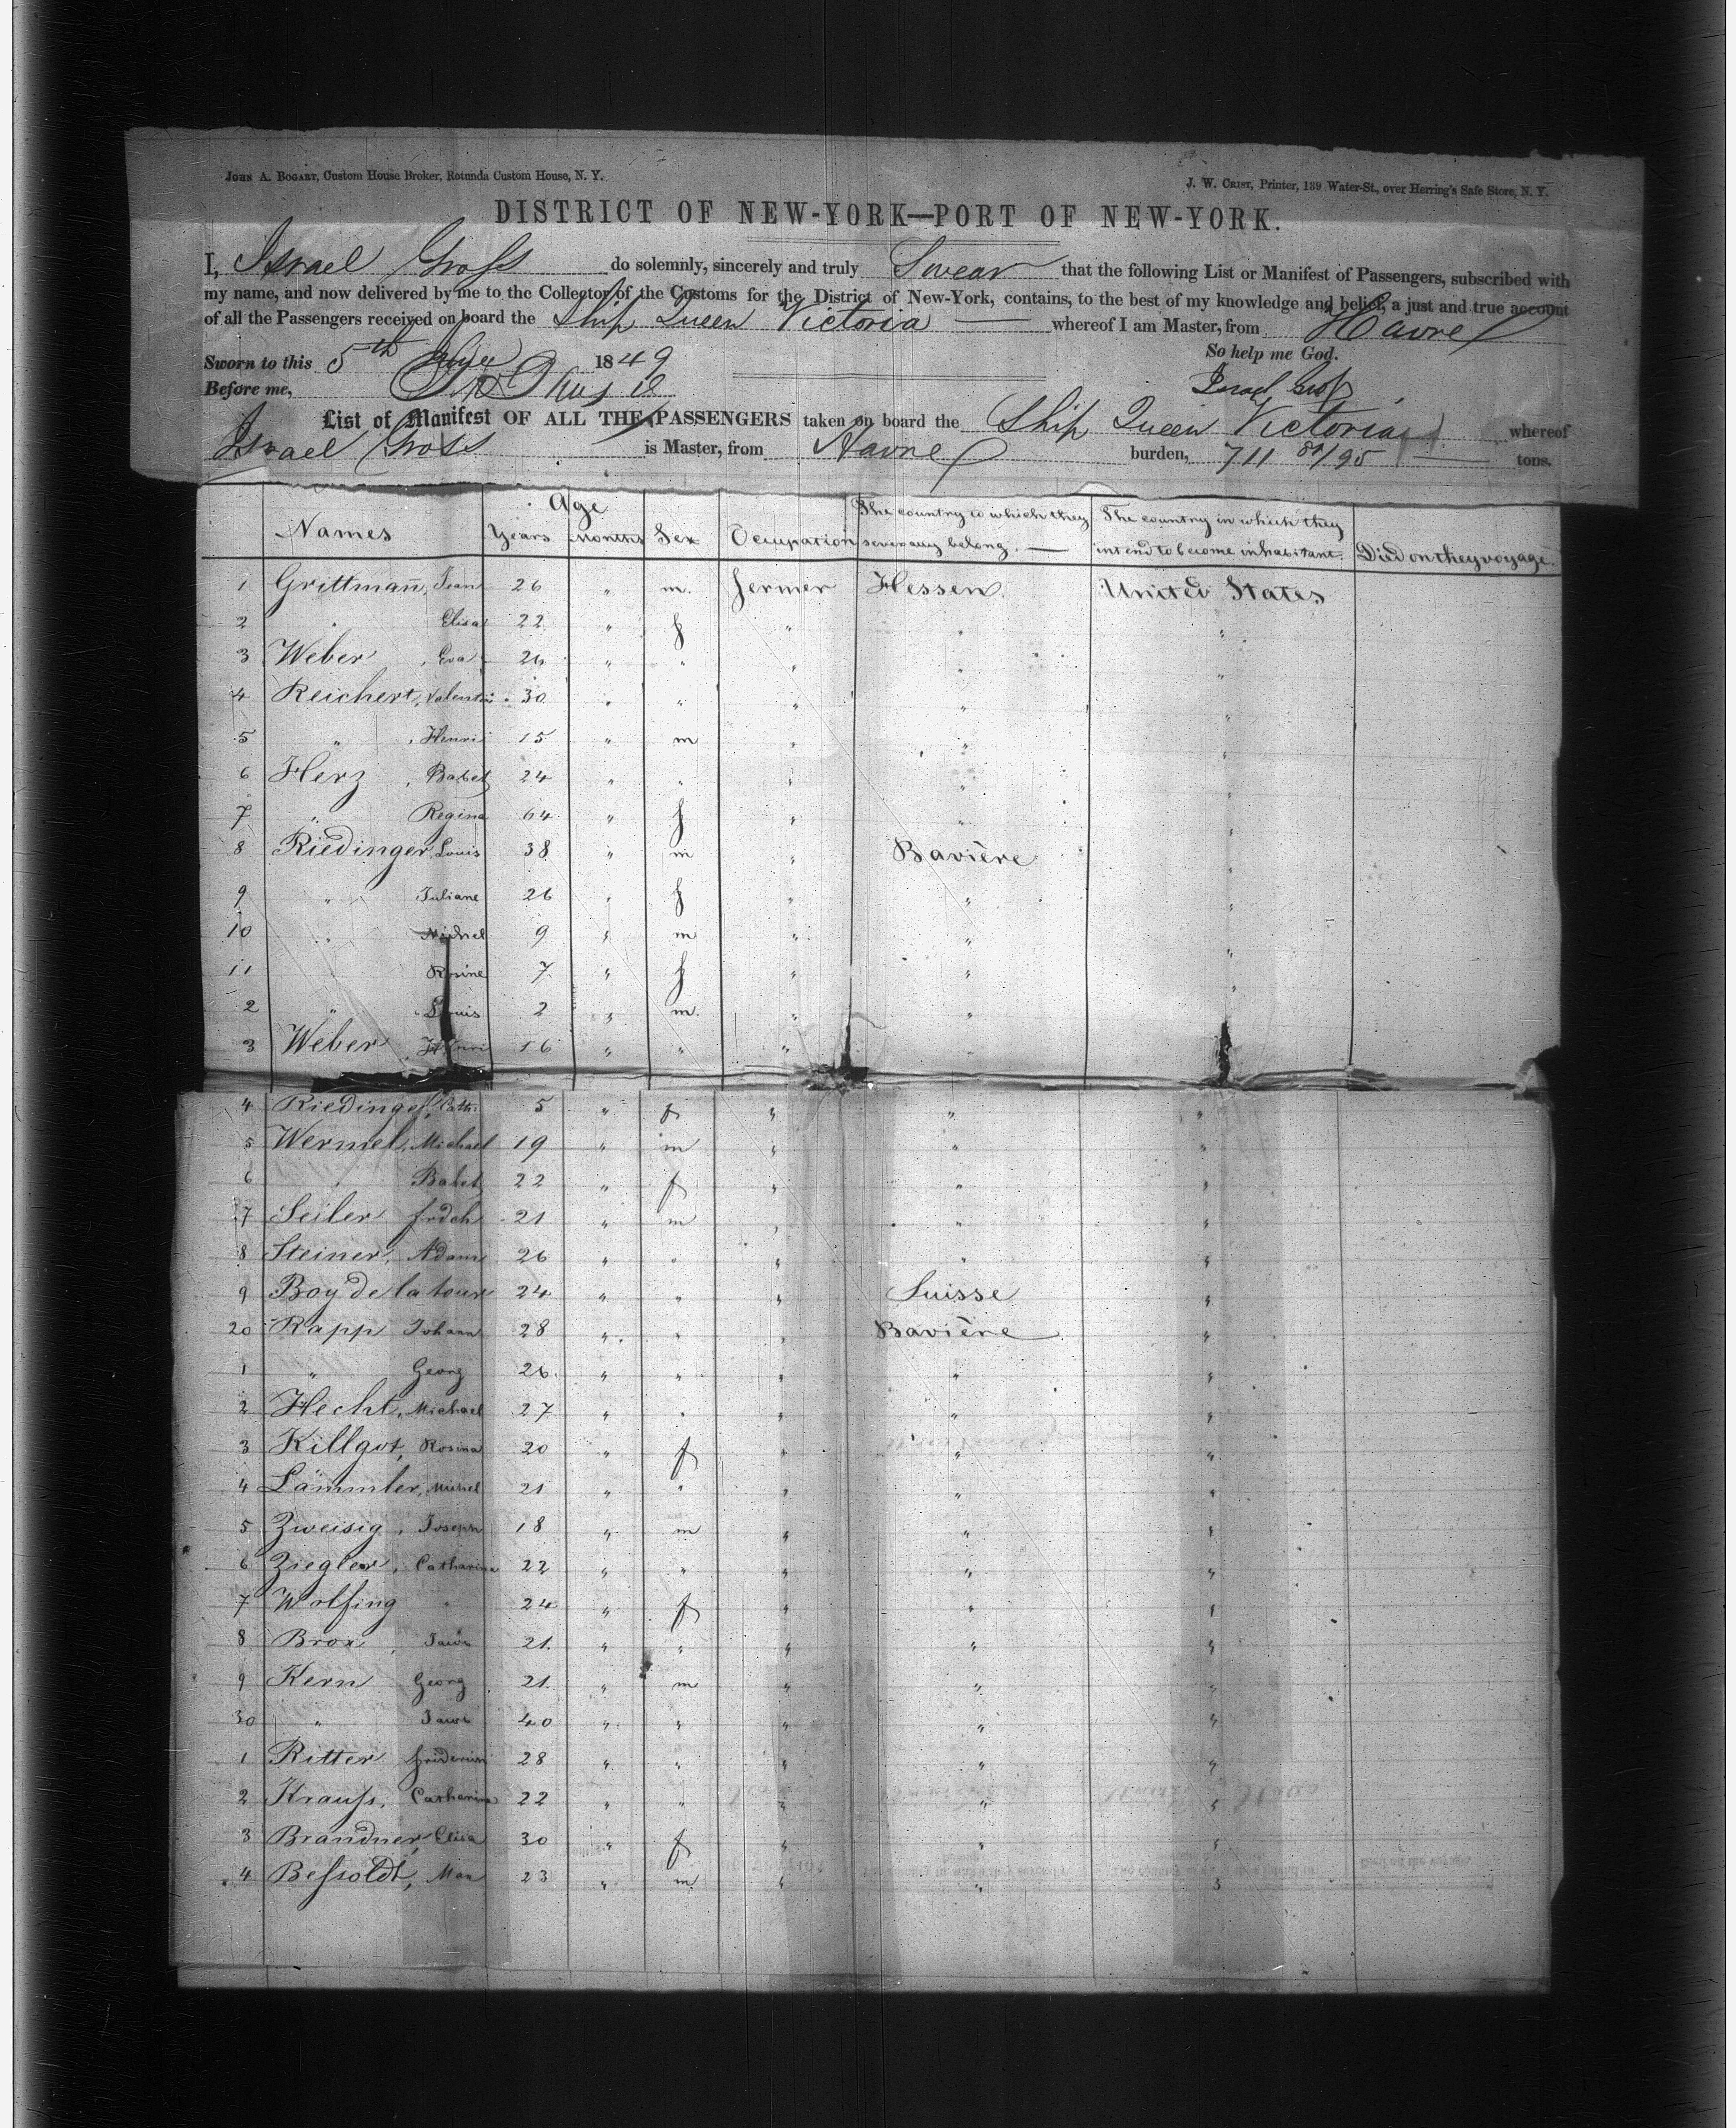 JOHN A. BOGART, Custom House Broker, Rotunda Custom House, N. Y.
J. W. CRIST, Printer, 139 Water-St., over Herring's Safe Store, N. Y.
DISTRICT OF NEW-YORK—PORT OF NEW-YORK.
I, Israel Gross do solemnly, sincerely and truly Swear that the following List or Manifest of Passengers, subscribed with
my name, and now delivered by me to the Collector of the Customs for the District of New-York, contains, to the best of my knowledge and belief, a just and true account
of all the Passengers received on board the Ship Queen Victoria — whereof I am Master, from Havre
So help me God.
Sworn to this 5th 1849
Before me, Israel Gross
List or Manifest OF ALL THE PASSENGERS taken on board the Ship Queen Victoria whereof
Israel Gross is Master, from Havre burden, 711 89/95 — tons.
Age
Names Years Months Sex Occupation The country to which they severally belong. — The country in which they intend to become inhabitant. Died on they voyage.
1 Grittmañ, Jean 26 " m. fermer Hessen United States
2 " Elisa 22 " f " " "
3 Weber, Eva 24 " " " " "
4 Reichert, Valentin 30 " " " " "
5 " , Henri 15 " m " " "
6 Herz, Babet 24 " " " " "
7 " Regina 64 " f " " "
8 Riedinger, Louis 38 " m " Bavière "
9 " Juliane 26 " f " " "
10 " Michel 9 " m " " "
11 Rosine 7 " f " " "
2 " Louis 2 " m. " "
3 Weber, Henri 16 " " " "
4 Riedinger, Cath. 5 " f " " "
5 Wermel, Michael 19 " m " " "
6 " Babet 22 " f " " "
7 Seiler frdch 21 " m " " "
8 Steiner, Adam 26 " " " " "
9 Boy de la tour 24 " " " Suisse "
20 Rapp Johann 28 " " " Bavière "
1 " Georg 26 " " " " "
2 Hecht, Michael 27 " " " " "
3 Killgot, Rosina 20 " f " " "
4 Lämmler, Michel 21 " " " " "
5 Zweisig, Joseph 18 " m " " "
6 Ziegler, Catharina 22 " " " " "
7 Wolfing " 24 " f " " "
8 Brox, 21. " " " " "
9 Kern Georg 21. " m " " "
30 " 40 " " " " "
1 Ritter 28 " " " " "
2 Krauss, Catharina 22 " " " " "
3 Brandner, Elisa 30 " f " " "
4 Bessoldt, Max 23 " m " " "